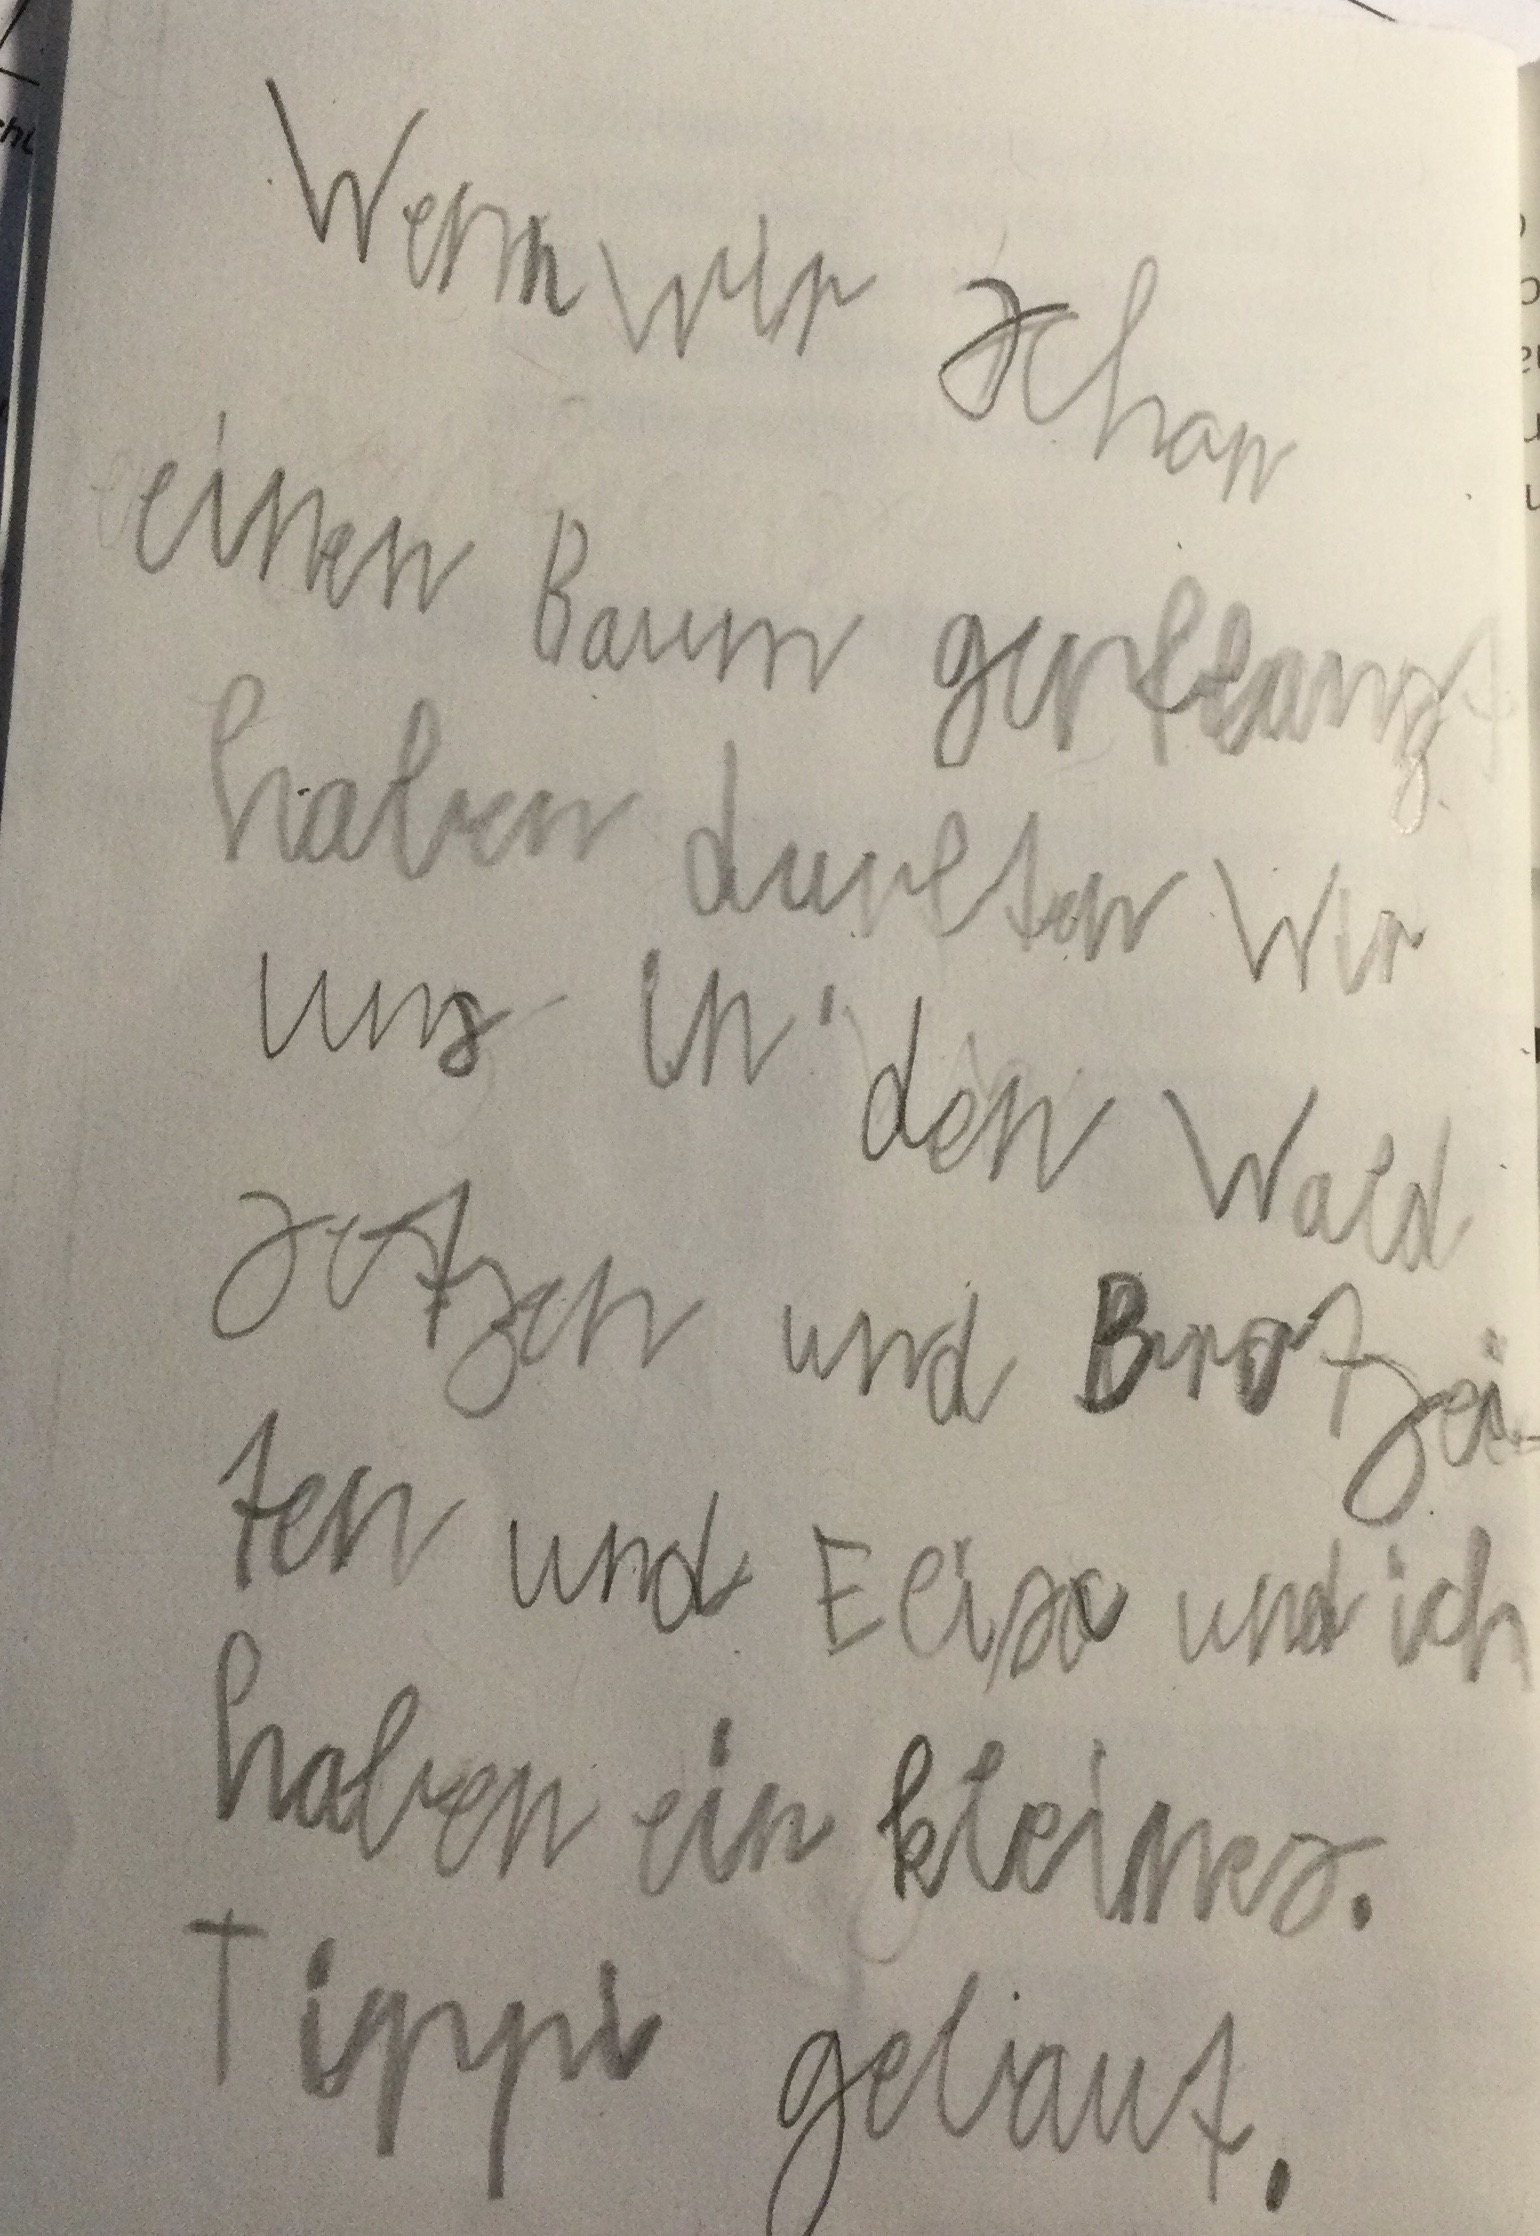 Wenn wir schon
einen Baum gepflanzt
haben durften wir
uns in den Wald
setzen und Brotzei-
ten und Elisa und ich
haben ein kleines.
Tippi gebaut.